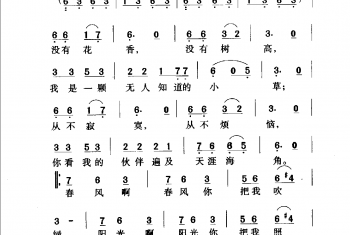 (6 3 6 3 6 3 6 3)
6 6 1 7 | 6· 0 | 6 6 1 7 | 3· 0
没有花 香， 没有树 高，
3 3 5 3 | 2 2 1 7 7 | 6 0 5 | 3· 0
我是一颗 无人知道的 小 草；
6 6 1 7 | 6· 0 | 6 6 1 7 | 3· 0
从不寂 寞， 从不烦 恼，
3 3 5 3 | 2 2 1 7 | 6 6 5 6 | 6· 0
你看我的 伙伴遍及 天涯海 角。
7 6 7 | 3 1 3 | 5 5 6 4
春风啊 春风你 把我吹
3 - | 7 6 7 | 3 1 3 | 5 5 6 4
绿， 阳光啊 阳光你 把我照